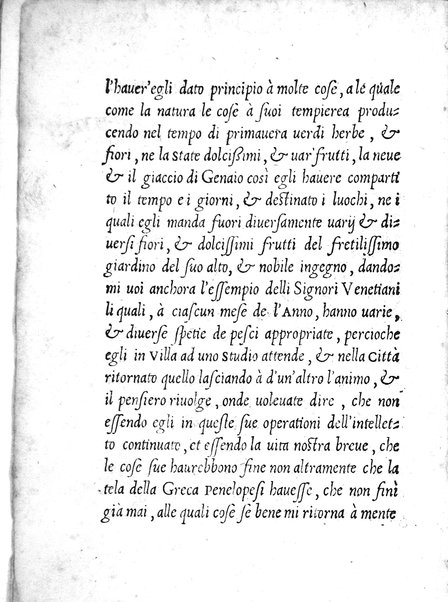 l'hauer'egli dato principio à molte cose, a le quale
come la natura le cose à suoi tempicrea produ-
cendo nel tempo di primauera uerdi herbe, &
fiori, ne la state dolcißimi, & uar' frutti, la neue
& il giaccio di Genaio così egli hauere comparti
to il tempo e i giorni, & destinato i luochi, ne i
quali egli manda fuori diuersamente uarij & di-
uersi fiori, & dolcissimi frutti del fretilissimo
giardino del suo alto, & nobile ingegno, dando-
mi uoi anchora l'essempio delli Signori Venetiani
li quali, à ciascun mese de l'Anno, hanno uarie,
& diuerse spetie de pesci appropriate, percioche
egli in Villa ad uno studio attende, & nella Città
ritornato quello lasciando à d'un'altro l'animo, &
il pensiero riuolge, onde uoleuate dire, che non
essendo egli in queste sue operationi dell'intellet-
to continuato, et essendo la uita nostra breue, che
le cose sue haurebbono fine non altramente che la
tela della Greca Penelopesi hauesse, che non finì
già mai, alle quali cose se bene mi ritorna à mente